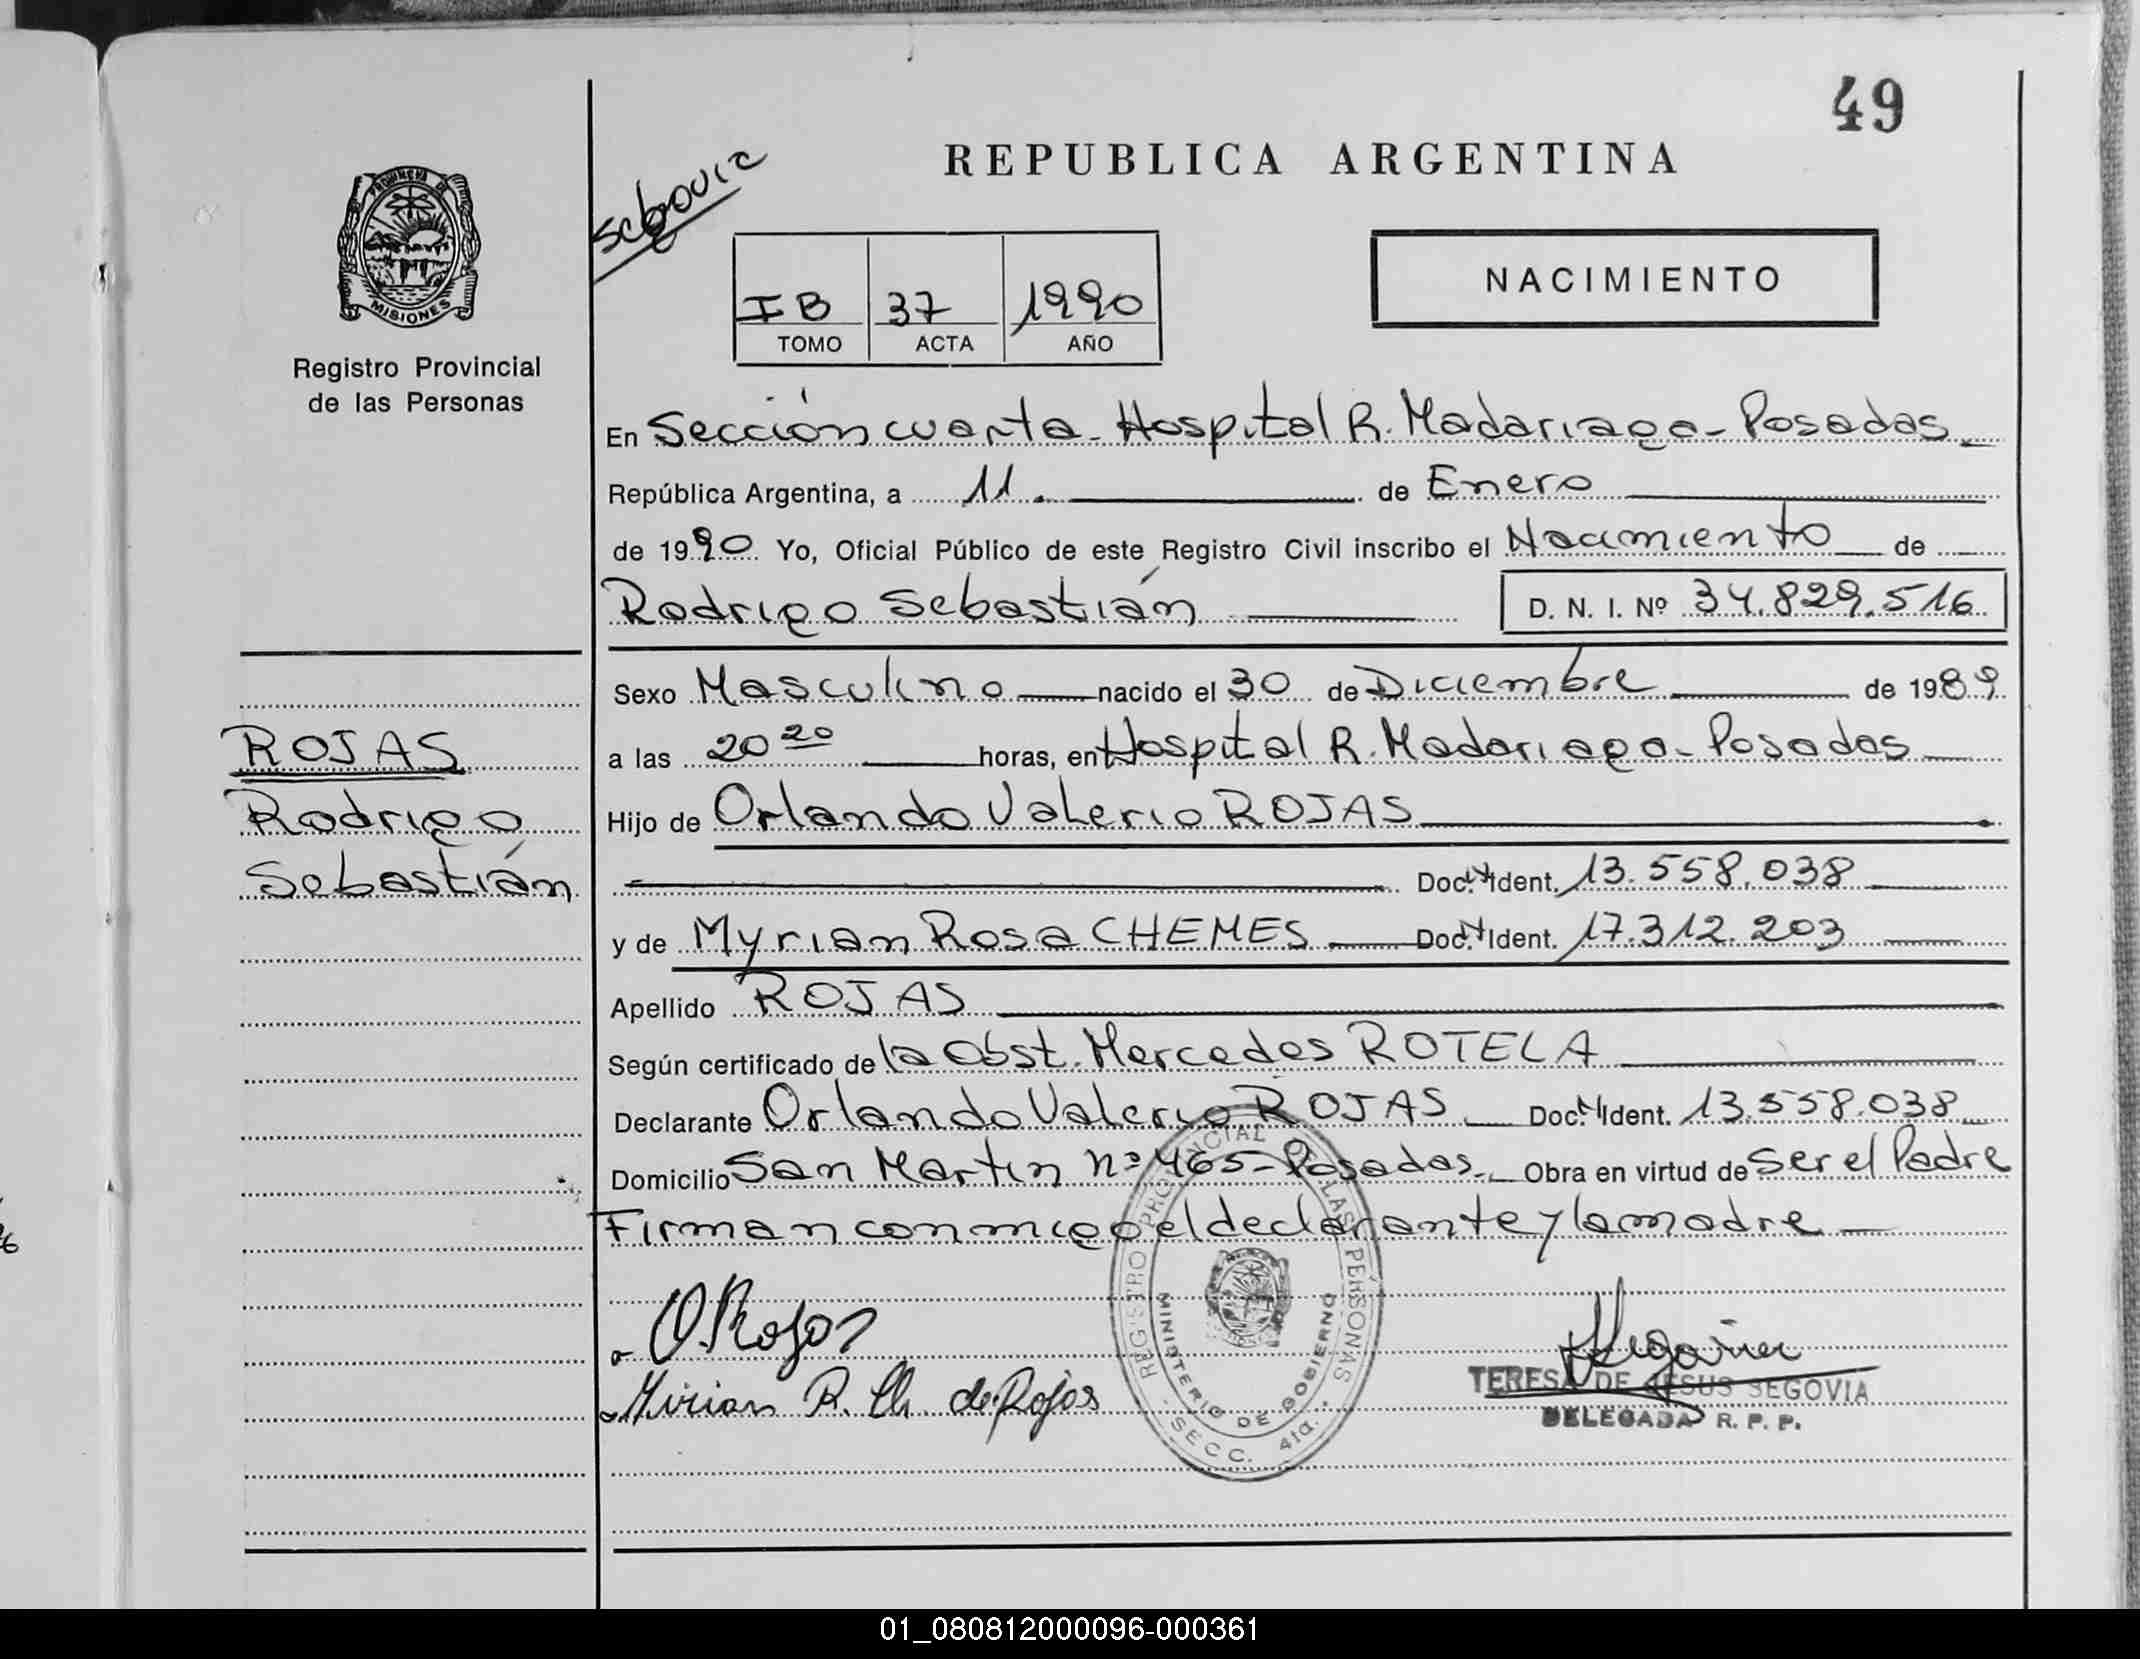 49
REPUBLICA ARGENTINA
Segovia
NACIMIENTO
IB 37 1990
TOMO ACTA AÑO
PROVINCIA DE MISIONES
Registro Provincial
de las Personas
En Sección cuarta - Hospital R. Madariaga - Posadas
República Argentina, a 11. de Enero
de 1990 Yo, Oficial Público de este Registro Civil inscribo el Nacimiento de
Rodrigo Sebastián D. N. I. Nº 34.829.516
Sexo Masculino nacido el 30 de Diciembre de 1989
a las 20 20 horas, en Hospital R. Madariaga - Posadas
ROJAS
Rodrigo
Sebastián
Hijo de Orlando Valerio ROJAS
Doc. Ident. 13.558.038
y de Myrian Rosa CHEMES Doc. Ident. 17.312.203
Apellido ROJAS
Según certificado de la Obst. Mercedes ROTELA
Declarante Orlando Valerio ROJAS Doc. Ident. 13.558.038
Domicilio San Martin nº 465 - Posadas. Obra en virtud de ser el Padre
Firman conmigo el declarante y la madre
O. Rojas
Mirian R. Ch. de Rojas
REGISTRO PROVINCIAL DE LAS PERSONAS
MINISTERIO DE GOBIERNO
- SECC. 4ta. -
TERESA DE JESUS SEGOVIA
DELEGADA R. P. P.
01_080812000096-000361